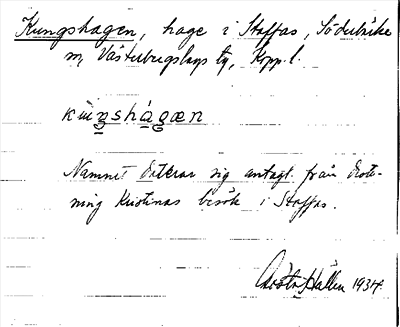 Kungshagen, hage i Staffas, Söderbärke
m, Västerbergslags tg, Kopp.l.
kùŋshágæn
Namnet daterar sig antagl. från drott-
ning Kristinas besök i Staffas.
Gösta Hallén 1934.